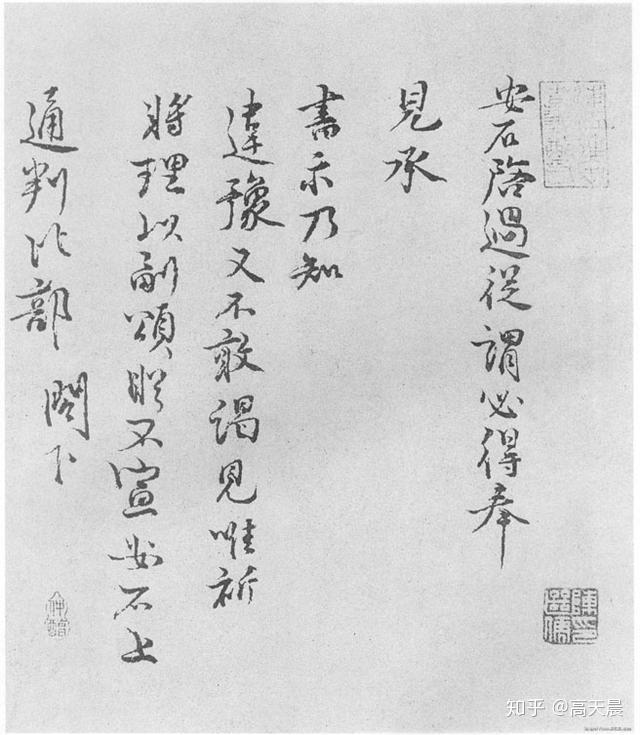 安石啓過從謂必得奉
見承
書示乃知
違豫又不敢謁見唯祈
將理以副頌瞻不宣安石上
通判比部 閣下
知乎 @高天晨